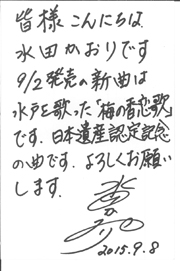 皆様こんにちは
水田かおりです
9/2発売の新曲は
水戸を歌った「梅の香恋歌」
です。日本遺産認定記念
の曲です。よろしくお願い
します。
2015.9.8